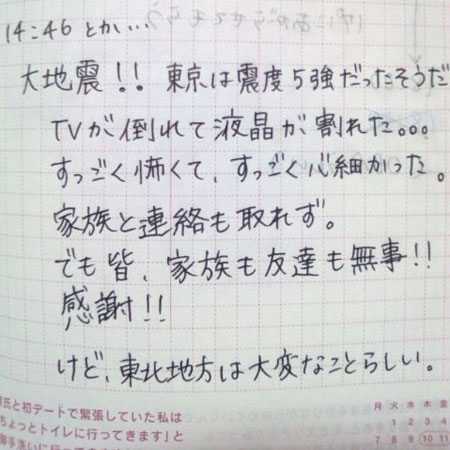 14:46 とかい…
大地震!! 東京は震度5強だったそうだ
TVが倒れて液晶が割れた。。。
すっごく怖くて、すっごく心細かった。
家族と連絡も取れず。
でも皆、家族も友達も無事!!
感謝!!
けど、東北地方は大変なことらしい。
氏と初デートで緊張していた私は
ちょっとトイレに行ってきます」と
手洗いに行って
月 火 水 木 金
1 2 3 4
7 8 9 10 11